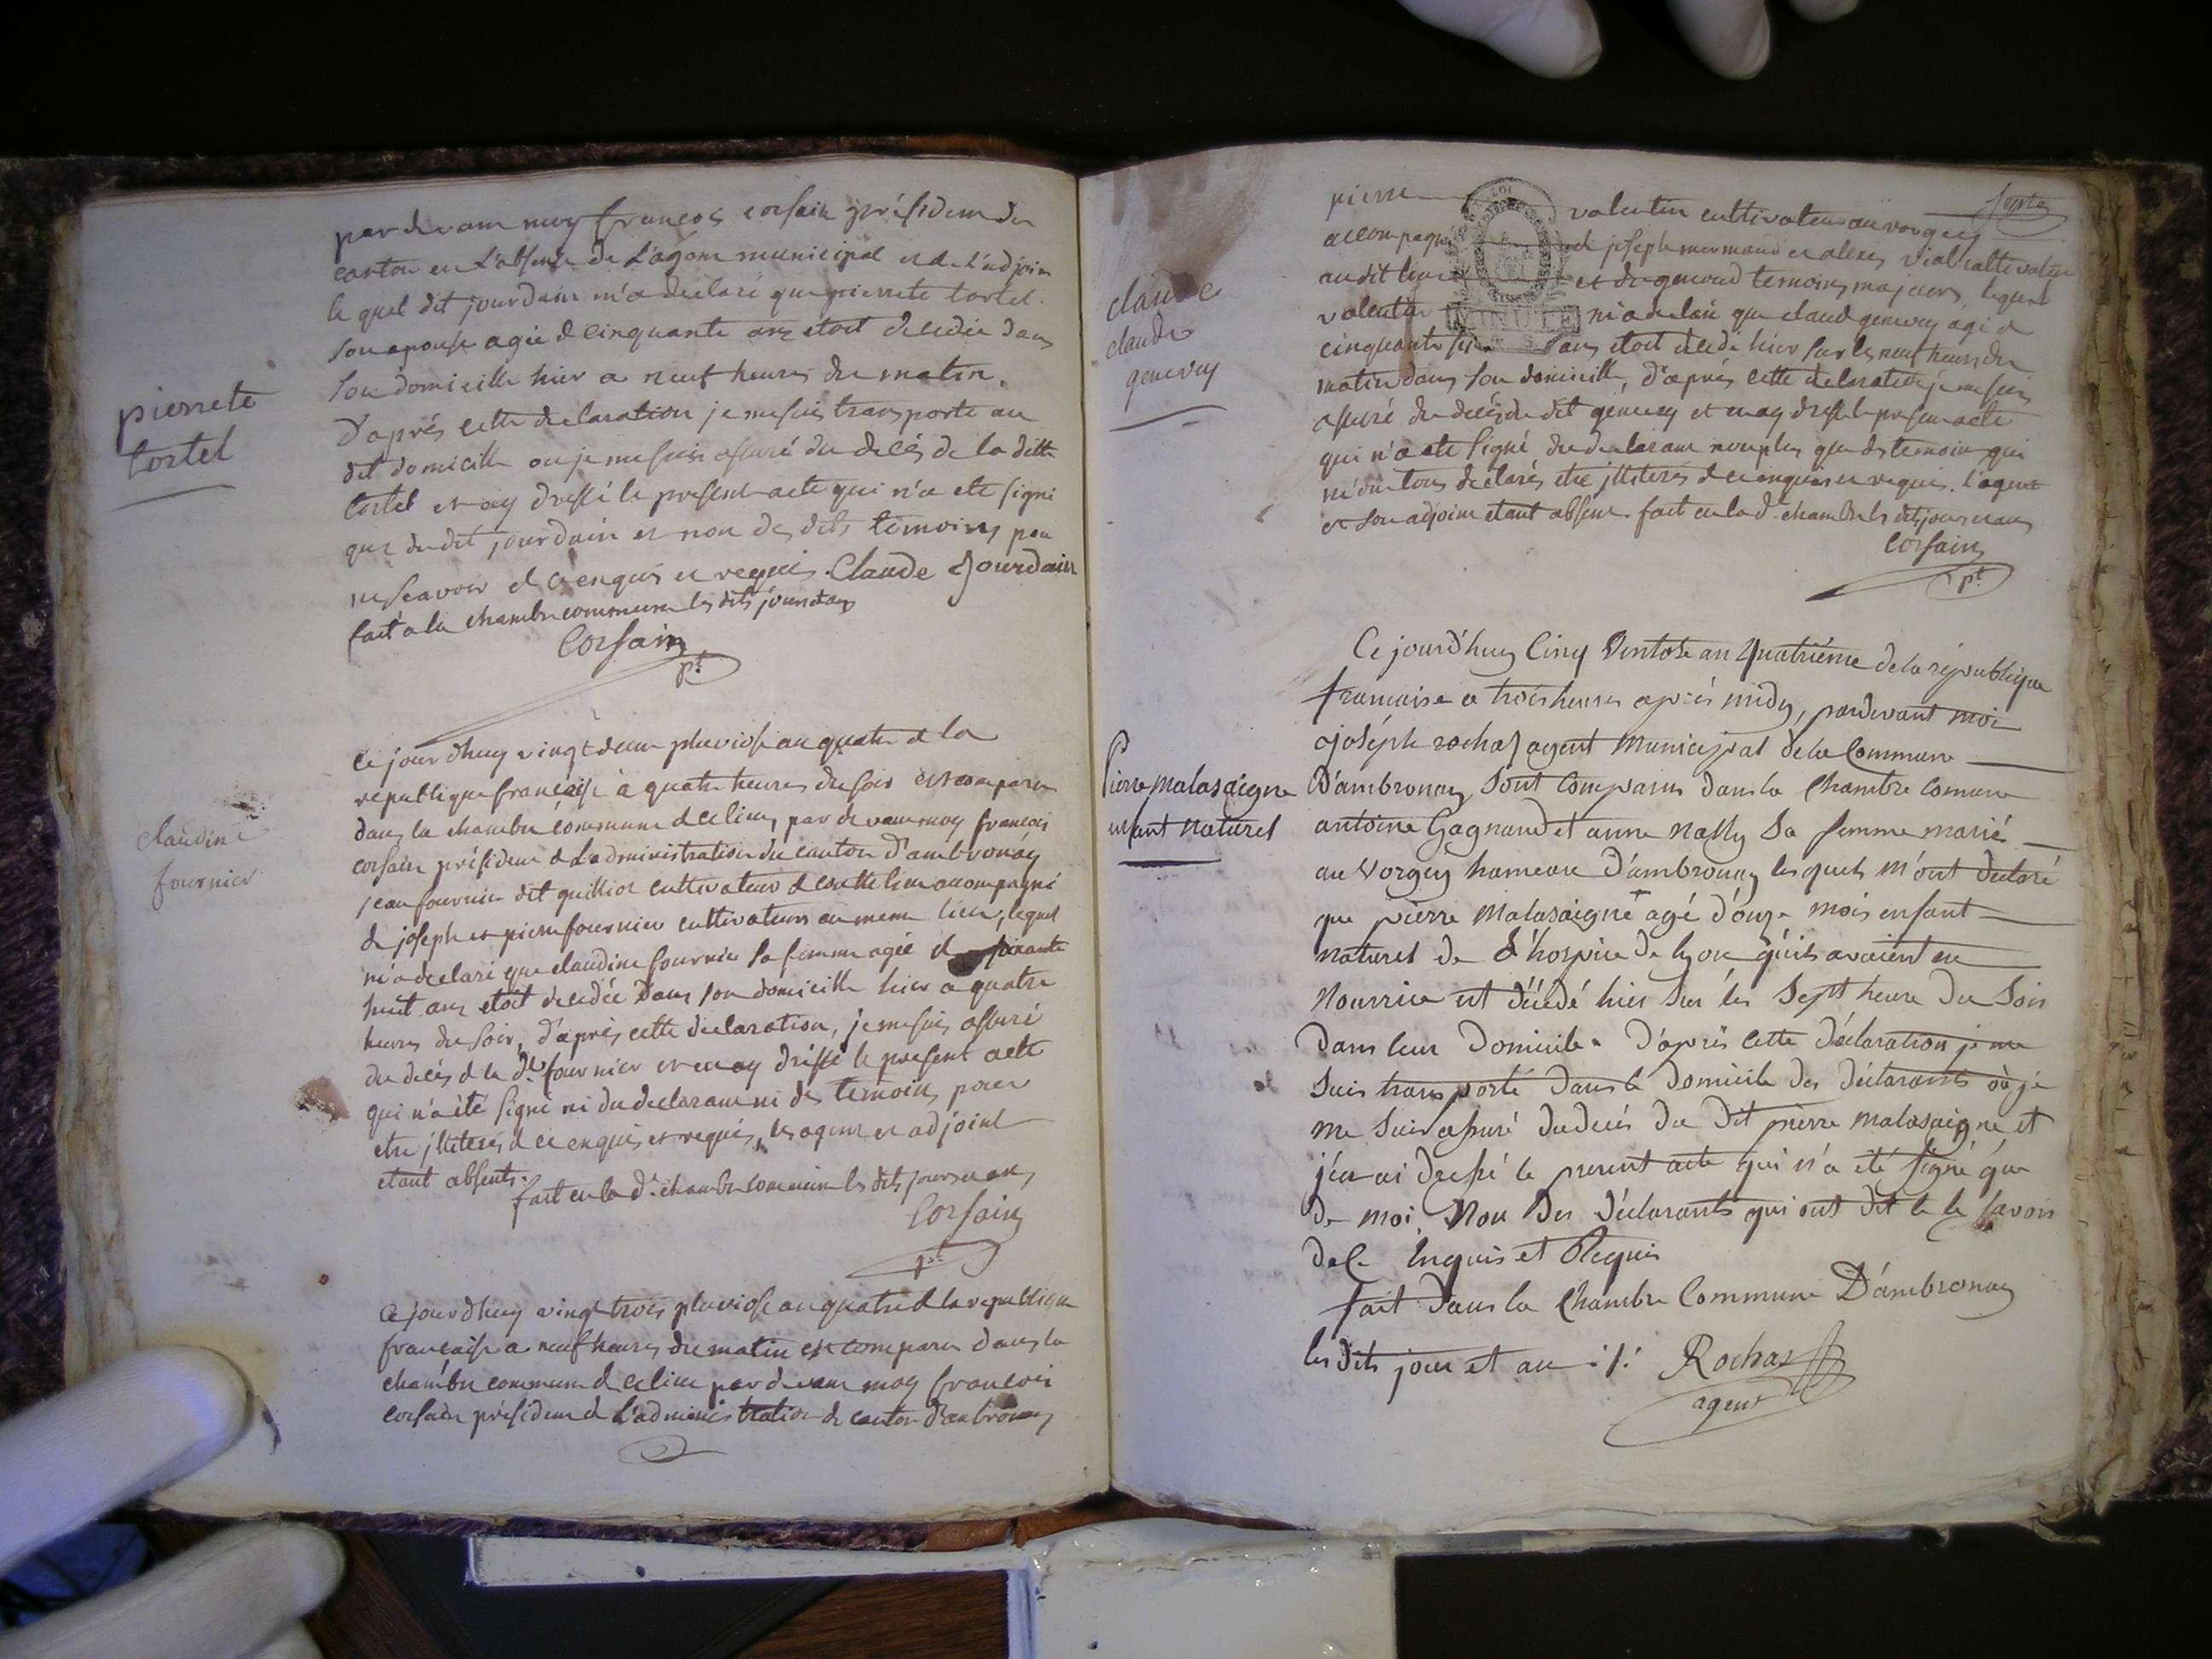 pardevant moy françois corsain président du
canton en l'absence de l'agent municipal et de l'adjoint
le quel dit jourdain m'a declaré que pierrete tortel
son epouse agée de cinquante ans etoit decedée dans
son domicille hier a neuf heures du matin,
D'après cette declaration je me suis transporté au
dit domicille ou je me suis assuré du decès de la ditte
tortel et ay dressé le present acte qui n'a eté signé
que du dit jourdain et non des dits temoins pour
ne scavoir de ce enquis et requis. Claude Jourdain
fait a la chambre commune les dits jour et an
Corsain
pt
pierrete
tortel
ce jourdhuy vingt deux pluviose an quatre de la
republique française à quatre heures du soir est comparu
dans la chambre commune de ce lieu, par devant moy françois
corsain président de l'administration du canton d'ambronay
jean fournier dit quilliot cultivateur de accompagné
de joseph et pierre fournier cultivateurs au meme lieu, lequel
m'a declaré que claudine fournier sa femme agée de soixante
huit ans etoit decedée dans son domicille hier a quatre
heures du soir, d'après cette declaration, je me suis assuré
du decès de la de fournier et en ay dressé le present acte
qui n'a été signé ni du declarant ni des temoins pour
etre jlliterés de ce enquis et requis, les agent et adjoint
etant absents.
fait en la de chambre commune les dits jour et an
Corsain
pt
claudine
fournier
ce jourdhuy vingt trois pluviose an quatre de la republique
française a neuf heures du matin est comparu dans la
chambre commune de ce lieu par devant moy françois
corsain président de l'administration de canton d'ambronay
septs
pierre valentin cultivateur au vorgey
accompagné de joseph mermand et alexis vial cultivateur
audit lieu et de genoud temoins majeurs, lequel
valentin m'a declaré que claud genevay agé de
cinquante ans etoit decedé hier sur les neuf heures du
matin dans son domicille, d'après cette declaration je me suis
assuré du decès du dit genevay et en ay dressé le present acte
qui n'a eté signé du declarant non plus que des temoins qui
m'ont tous declarés etre jlliterés de ce enquis et requis. L'agent
et son adjoint etant absent. fait en la de chambre les dits jour et an
Corsain
pt
claude
claude
genevay
Ce jourd'huy Cinq Ventose an quatriéme de la république
francaise a trois heures aprés midy, pardevant moi
joséph rochas agent Municipal de la Commune
D'ambronay Sont Comparus dans la Chambre Comune
antoine Gagnaud et anne nally Sa femme marié
au Vorgey hameau D'ambronay lesquels M'ont declaré
que pierre Malasaigne agé d'onze mois enfant
naturel de L'hospice de lyon qu'ils avaient en
Nourrice est décédé hier Sur les Sept heure du Soir
Dans leur Domicile. D'après Cette Déclaration je me
Suis transporté dans le Domicile des Déclarants où je
me Suis assuré du decés du Dit pierre Malasaigne et
j'en ai dressé le present acte qui n'a été Signé que
de moi, Non Des Déclarants qui ont dit ne le savoir
de Ce Enquis et Requis
fait dans la Chambre Commune D'ambronay
les dits jour et an
Rochas
agent
Pierre Malasaigne
enfant Naturel
LOI
MINUTE